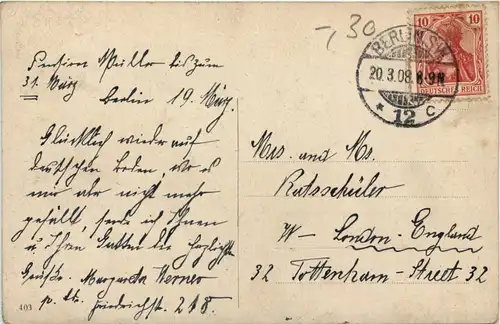 -,30
BERLIN.SW
20.3.08.8-9N
* 12 c
10 10
DEUTSCHES REICH
Pension Müller bis zum
31. März
Berlin 19. März.
Glücklich wieder auf
deutschem Boden, wo es
mir aber nicht mehr
gefällt, sende ich Ihnen
u Ihrem Gatten die herzlichsten
Grüße. Margarete Werner
Friedrichst. 218.
403
Mrs. and Mr.
Ratsschüler
W- London-England
32 Tottenham-Street 32